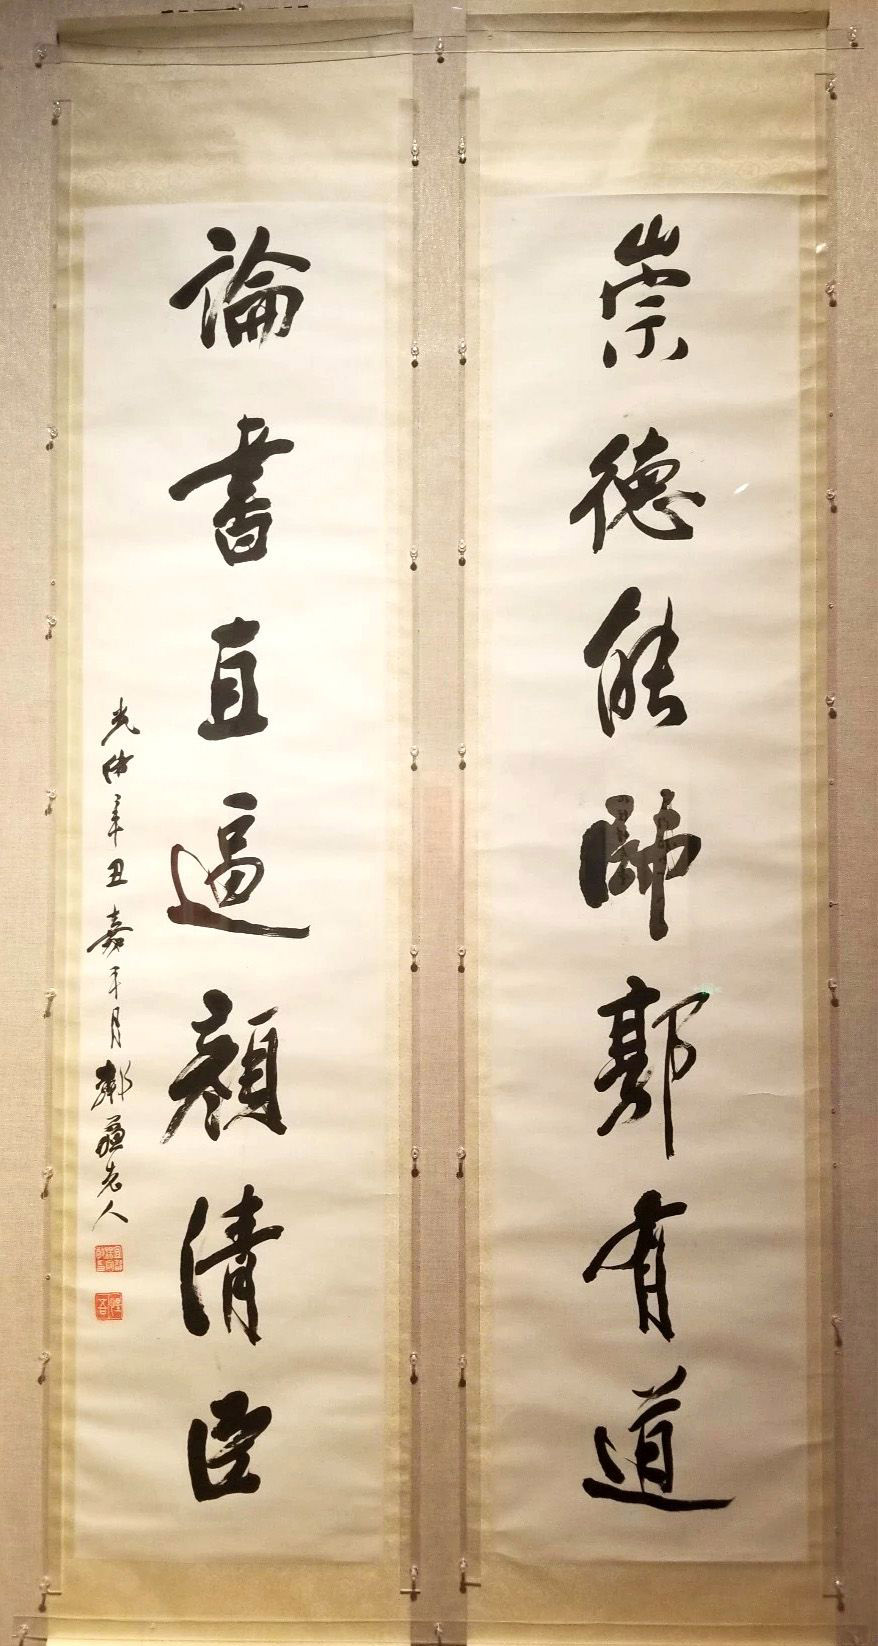 崇德能師郭有道
論書直逼顔清臣
光緒辛丑嘉平月鄰蘇老人